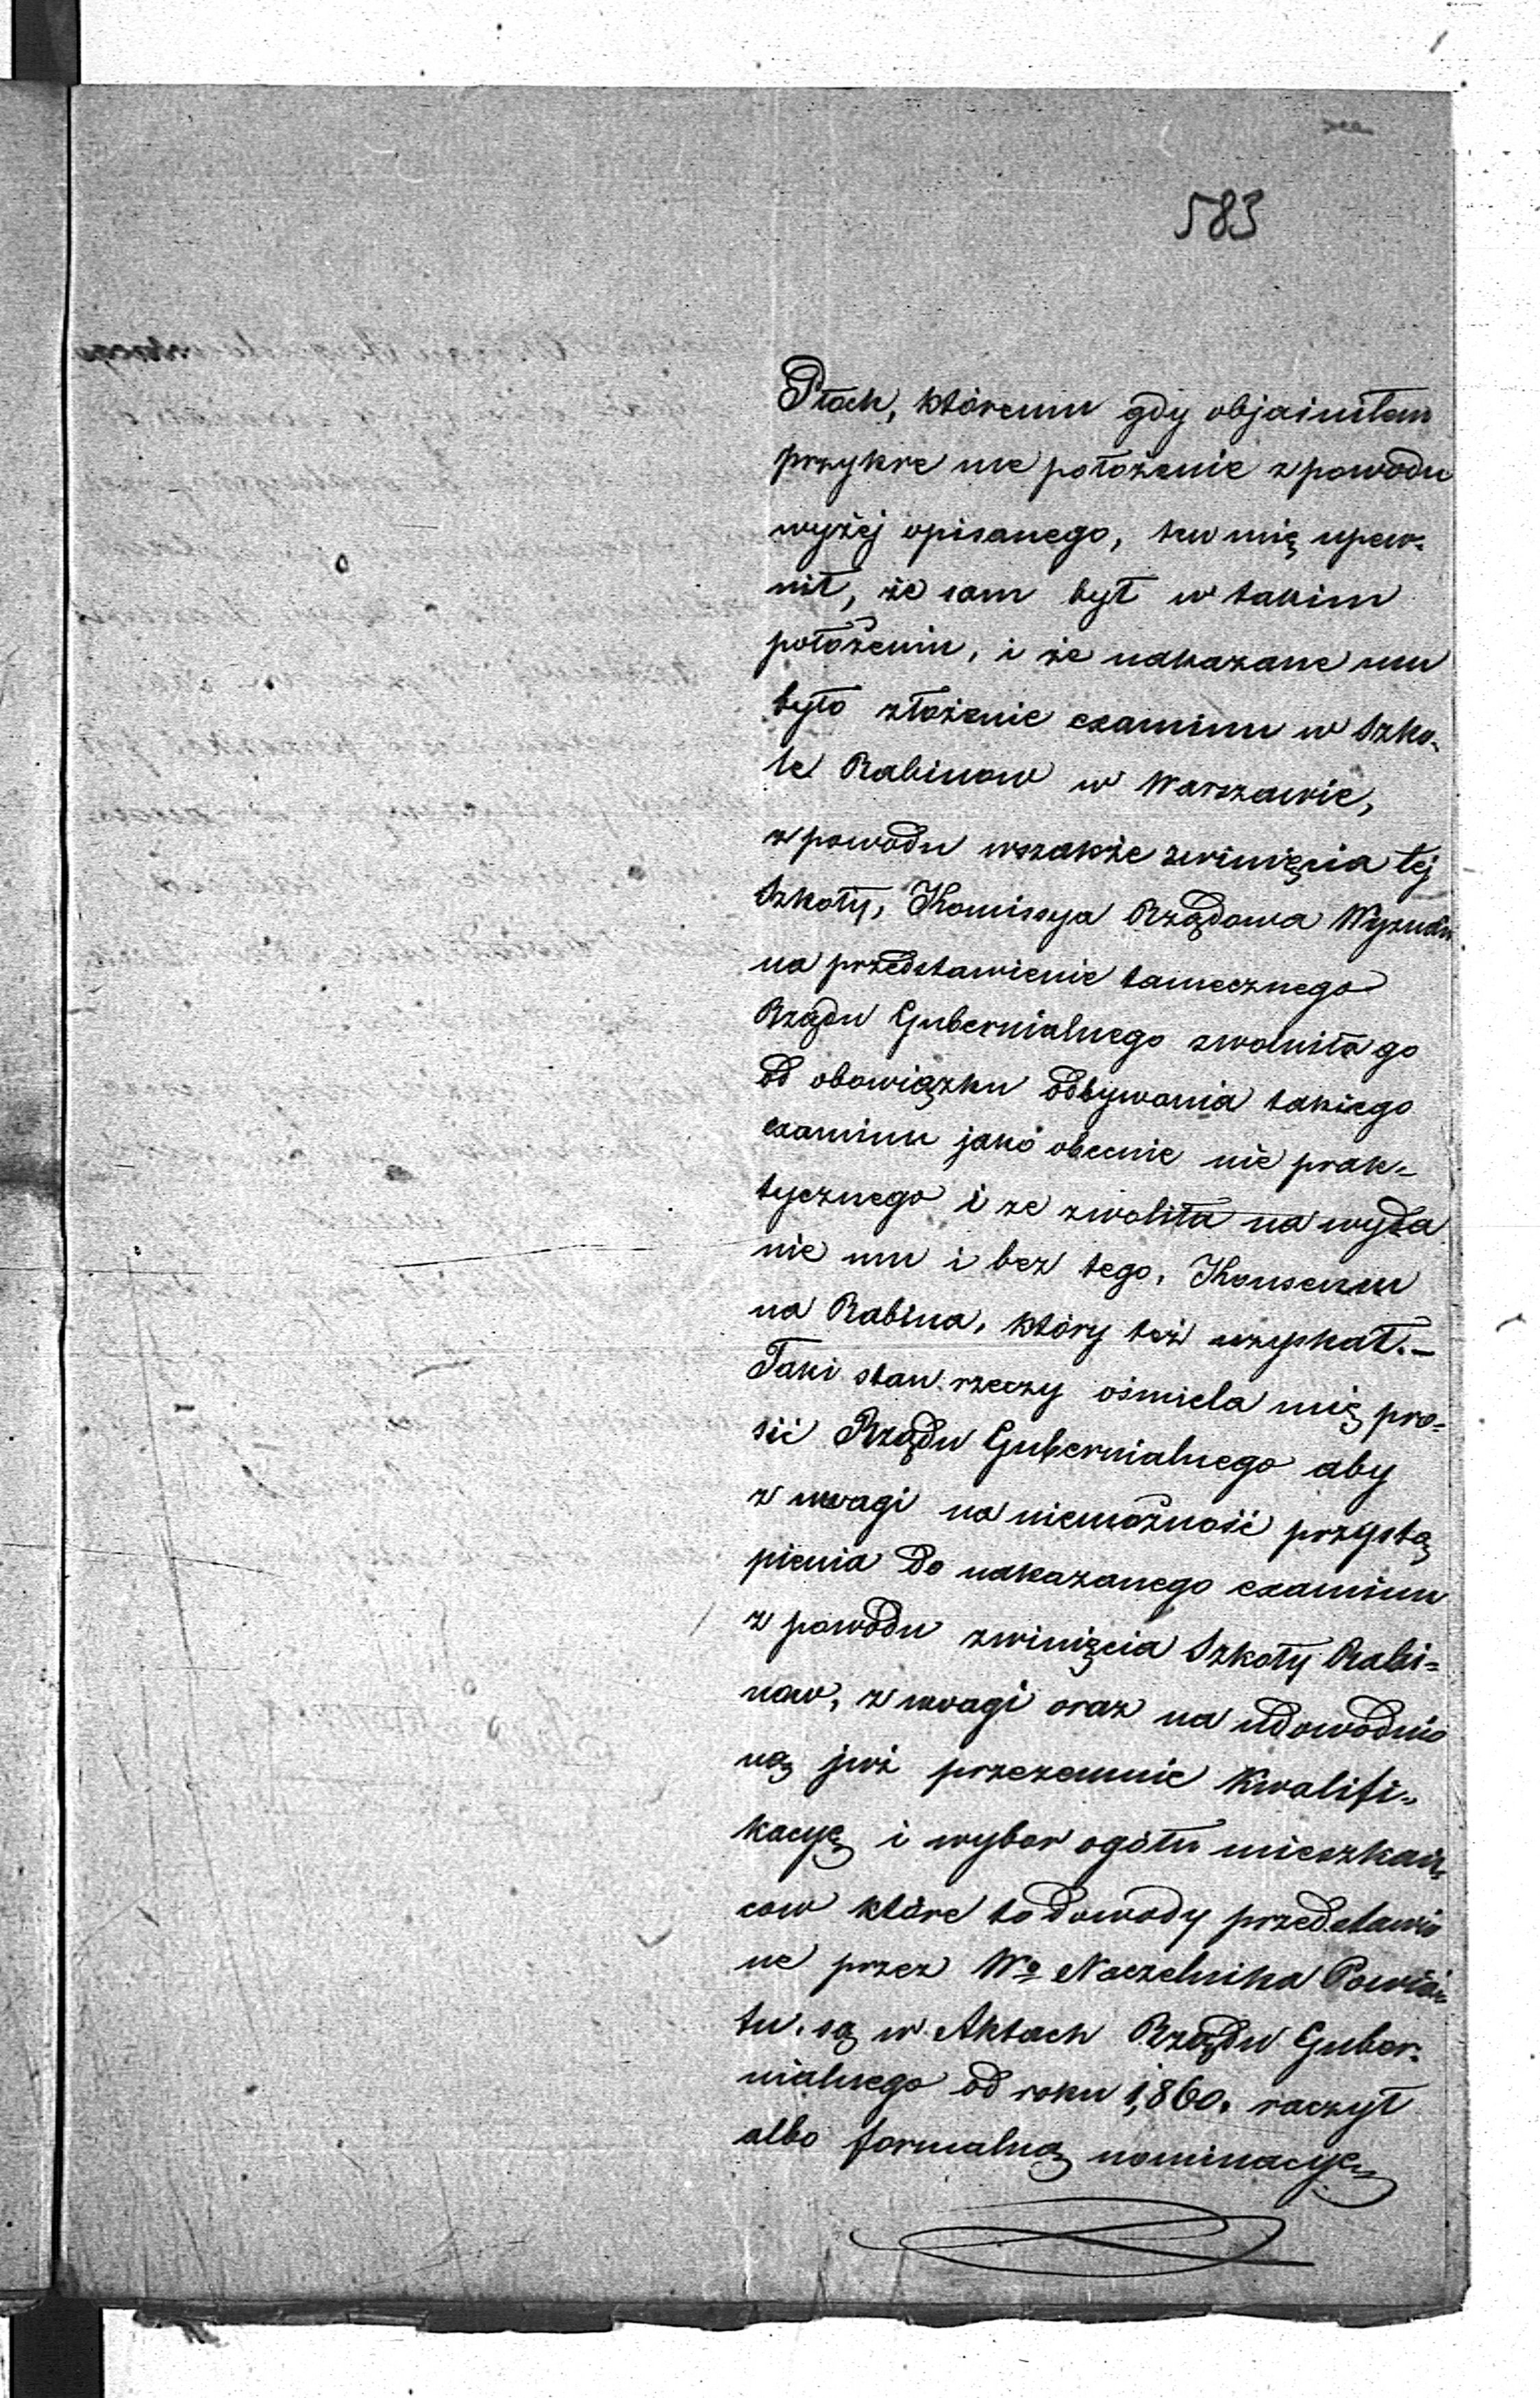 583
Płock, któremu gdy objaśniłem
przykre me położenie z powodu
wyżej opisanego, ten mię upew=
nił, że sam był w takim
położeniu, i że nakazane mu
było złożenie examinu w Szko=
le Rabinow w Warszawie,
z powodu wszakże zwinięcia tej
Szkoły, Kommissya Rządowa Wyznań
na przedstawienie tamecznego
Rządu Gubernialnego zwolniła go
od obowiązku odbywania takiego
examinu jako obecnie nie prak=
tycznego i ze zwoliła na wyda
nie mu i bez tego, Konsensu
na Rabina, który też uzyskał.–
Taki stan rzeczy ośmiela mię pro=
sić Rządu Gubernialnego aby
z uwagi na niemożność przystą
pienia do nakazanego examinu
z powodu zwinięcia Szkoły Rabi=
now, z uwagi oraz na udowodnio
ną już przezemnie Kwalifi=
kacyę i wybor ogółu mieszkań=
cow które to dowody przedstawio
ne przez Wo Naczelnika Powia=
tu. są w Aktach Rządu Guber=
nialnego od roku 1,860. raczył
albo formalną nominacyę